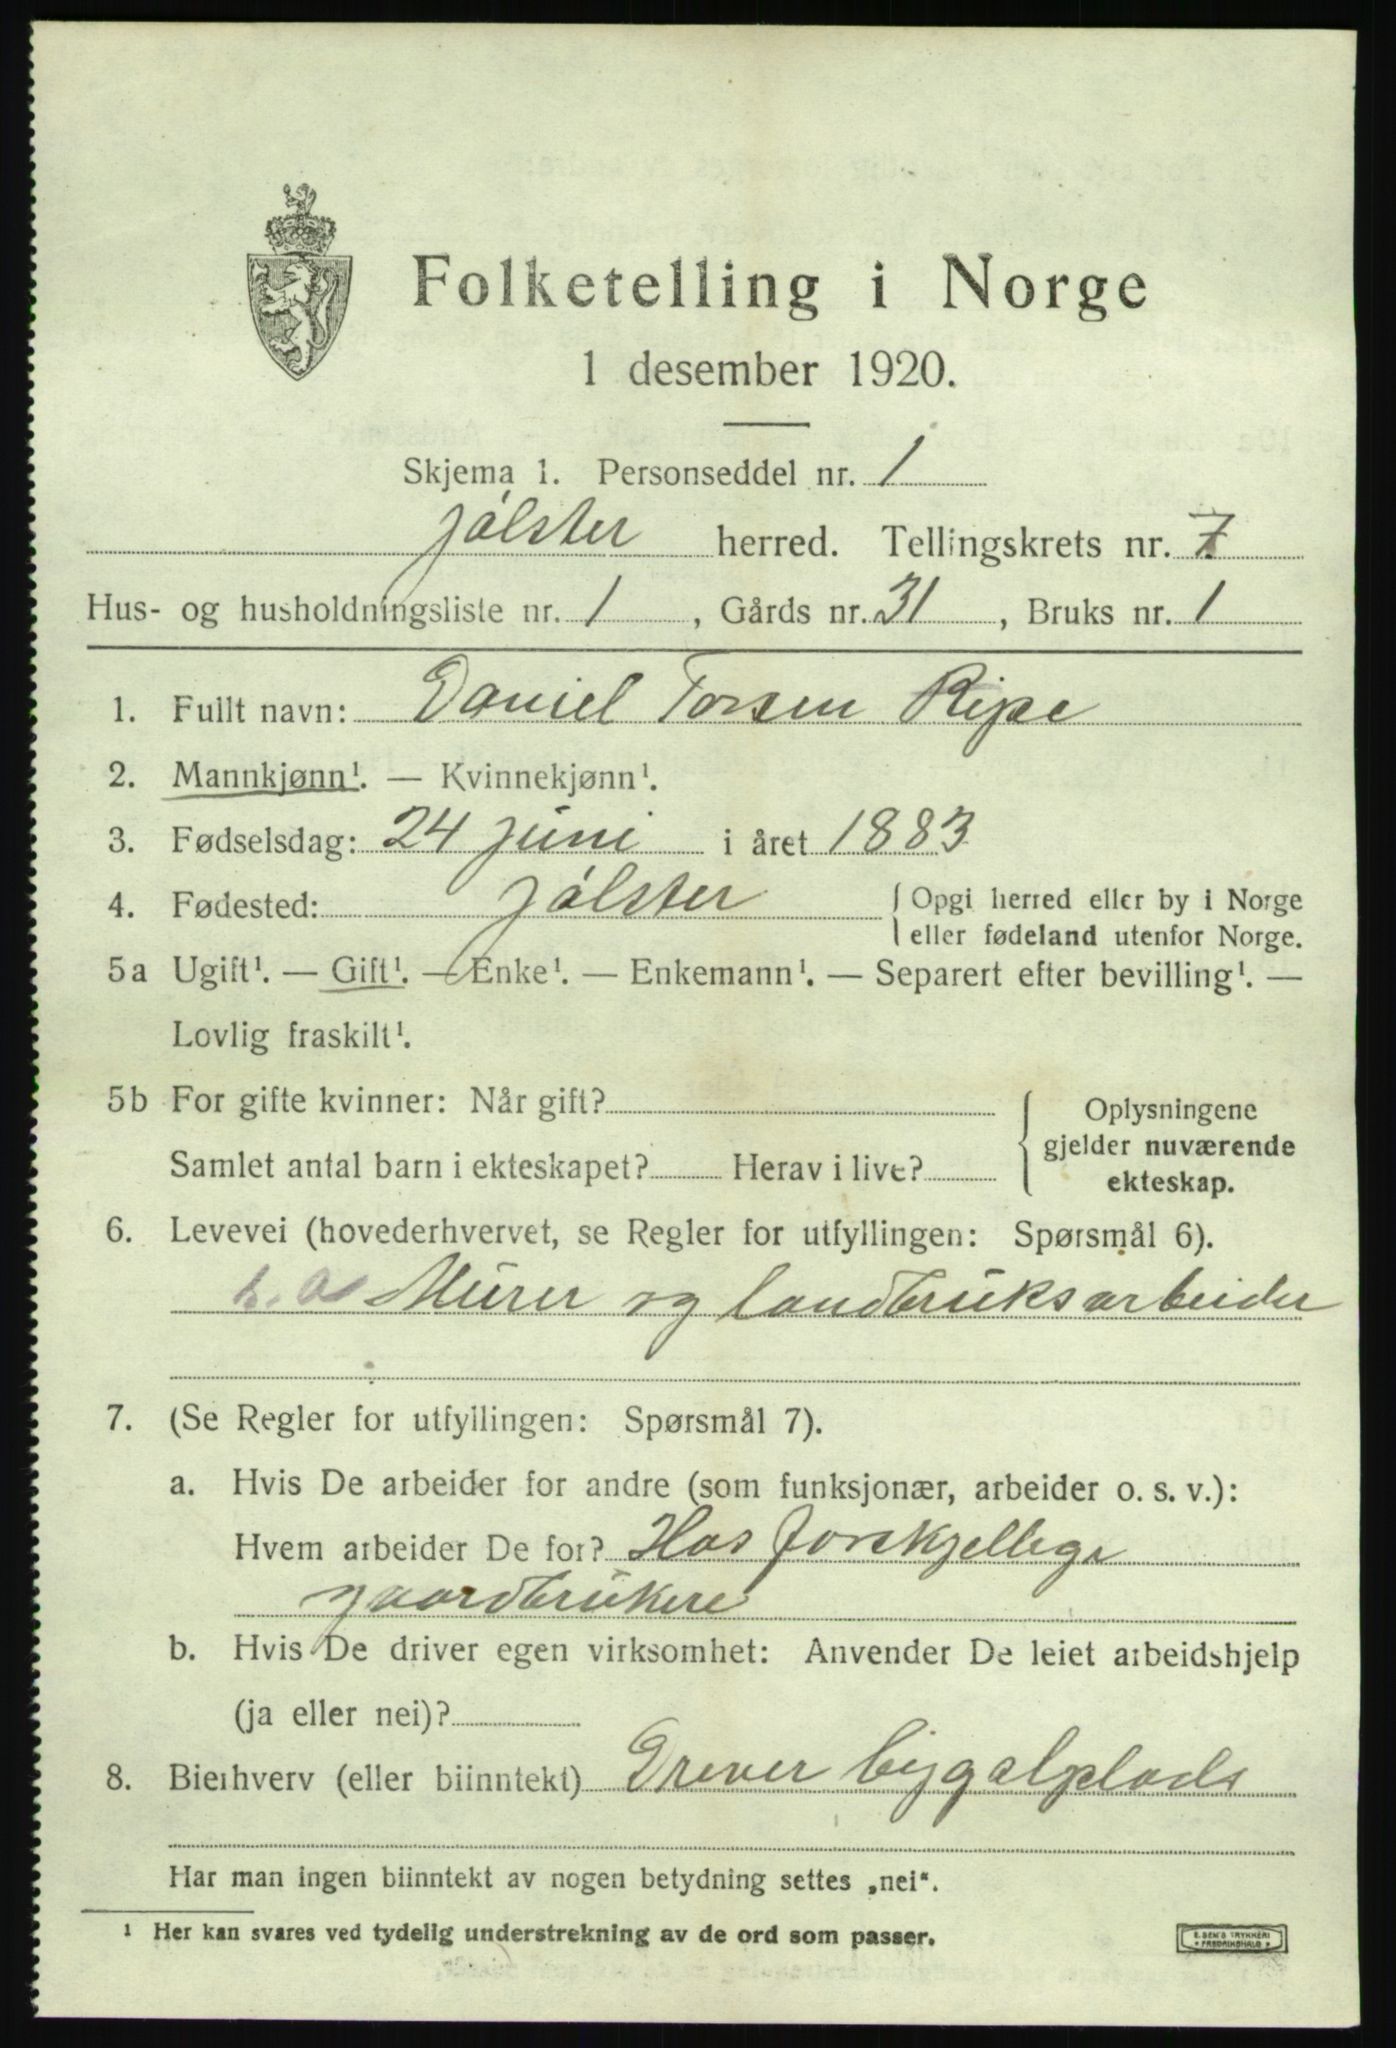 Folketelling i Norge
1 desember 1920.
Skjema 1. Personseddel nr. 1
Jølster herred. Tellingskrets nr. 7
Hus- og husholdningsliste nr. 1, Gårds nr. 31, Bruks nr. 1
1. Fullt navn: Daniel Torsen Ripe
2. Mannkjønn¹. — Kvinnekjønn¹.
3. Fødselsdag: 24 juni i året 1883
4. Fødested: Jølster { Opgi herred eller by i Norge
eller fødeland utenfor Norge.
5a Ugift¹. — Gift¹. — Enke¹. — Enkemann¹. — Separert efter bevilling¹. —
Lovlig fraskilt¹.
5b For gifte kvinner: Når gift? { Oplysningene
gjelder nuværende
Samlet antal barn i ekteskapet? Herav i live?
ekteskap.
6. Levevei (hovederhvervet, se Regler for utfyllingen: Spørsmål 6).
Murer og landbruksarbeider
7. (Se Regler for utfyllingen: Spørsmål 7).
a. Hvis De arbeider for andre (som funksjonær, arbeider o. s. v.):
Hvem arbeider De for? Hos forskjellige
gaardbrukere
b. Hvis De driver egen virksomhet: Anvender De leiet arbeidshjelp
(ja eller nei)?
8. Bierhverv (eller biinntekt) Drever bygselplads
Har man ingen biinntekt av nogen betydning settes „nei“.
¹ Her kan svares ved tydelig understrekning av de ord som passer.
E. SEM'S TRYKKERI
FREDRIKSHALD